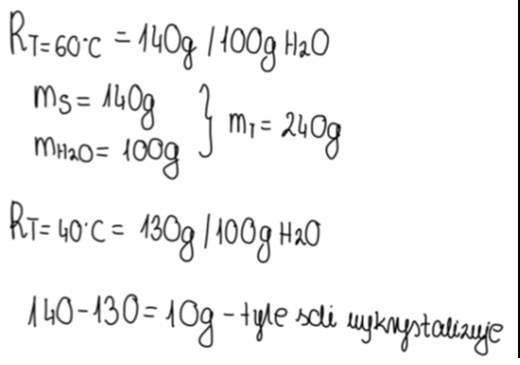 R_T=60°C = 140g / 100g H₂O
m_S = 140g } m_T = 240g
m_H₂O = 100g
R_T=40°C = 130g / 100g H₂O
140 - 130 = 10g - tyle soli wykrystalizuje